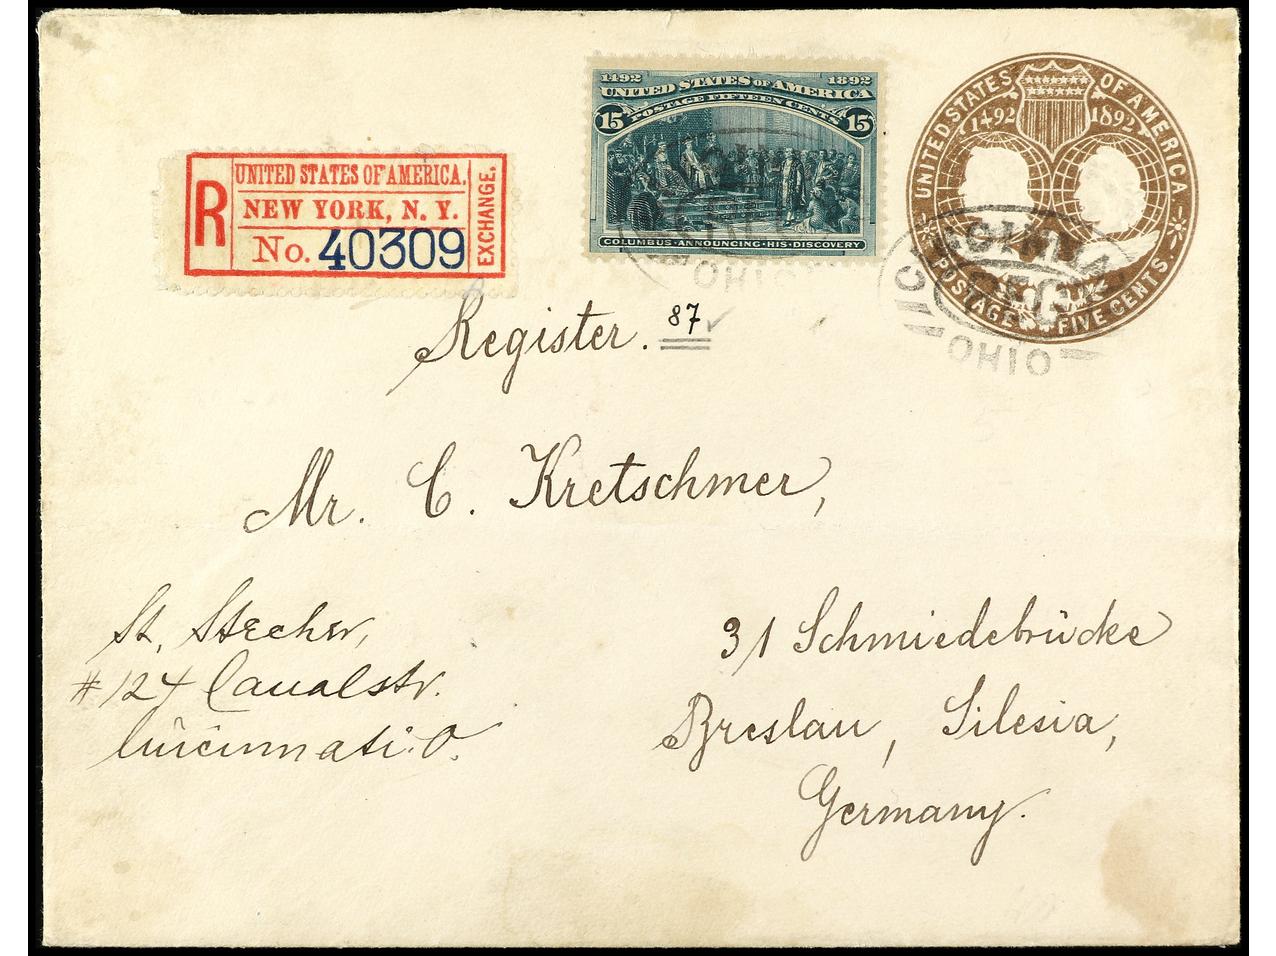 1492 1892
UNITED STATES OF AMERICA
POSTAGE FIFTEEN CENTS
15 15
COLUMBUS·ANNOUNCING·HIS·DISCOVERY
UNITED STATES OF AMERICA
1492 1892
POSTAGE FIVE CENTS.
OHIO
OHIO
R
UNITED STATES OF AMERICA.
NEW YORK, N. Y.
No. 40309
EXCHANGE.
Register. 87
Mr. C. Kretschmer,
31 Schmiedebrücke
Breslau, Silesia,
Germany.
St. Stecher,
#124 Canalstr.
Cincinnati. O.